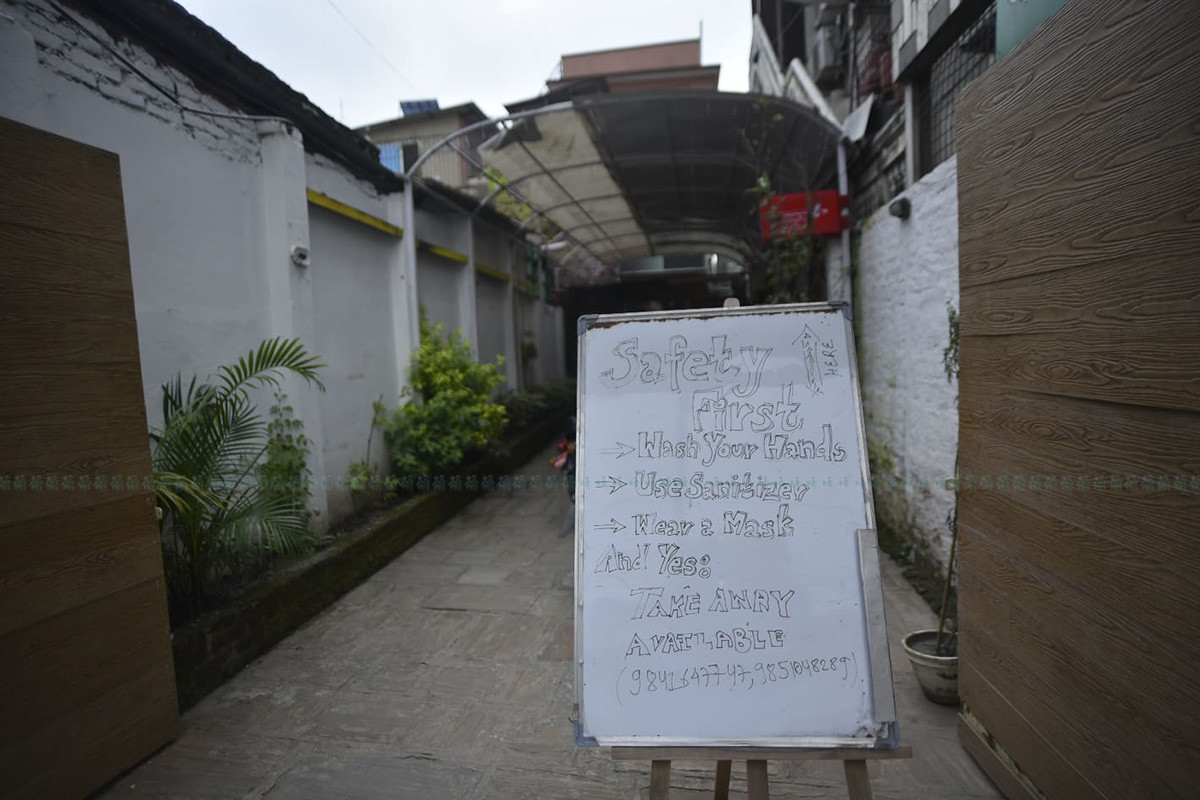 Safety
HERE
First
→ Wash Your Hands
→ Use Sanitizer
→ Wear a Mask
And Yes:
TAKE AWAY
AVAILABLE
(9841647747, 9851048289)